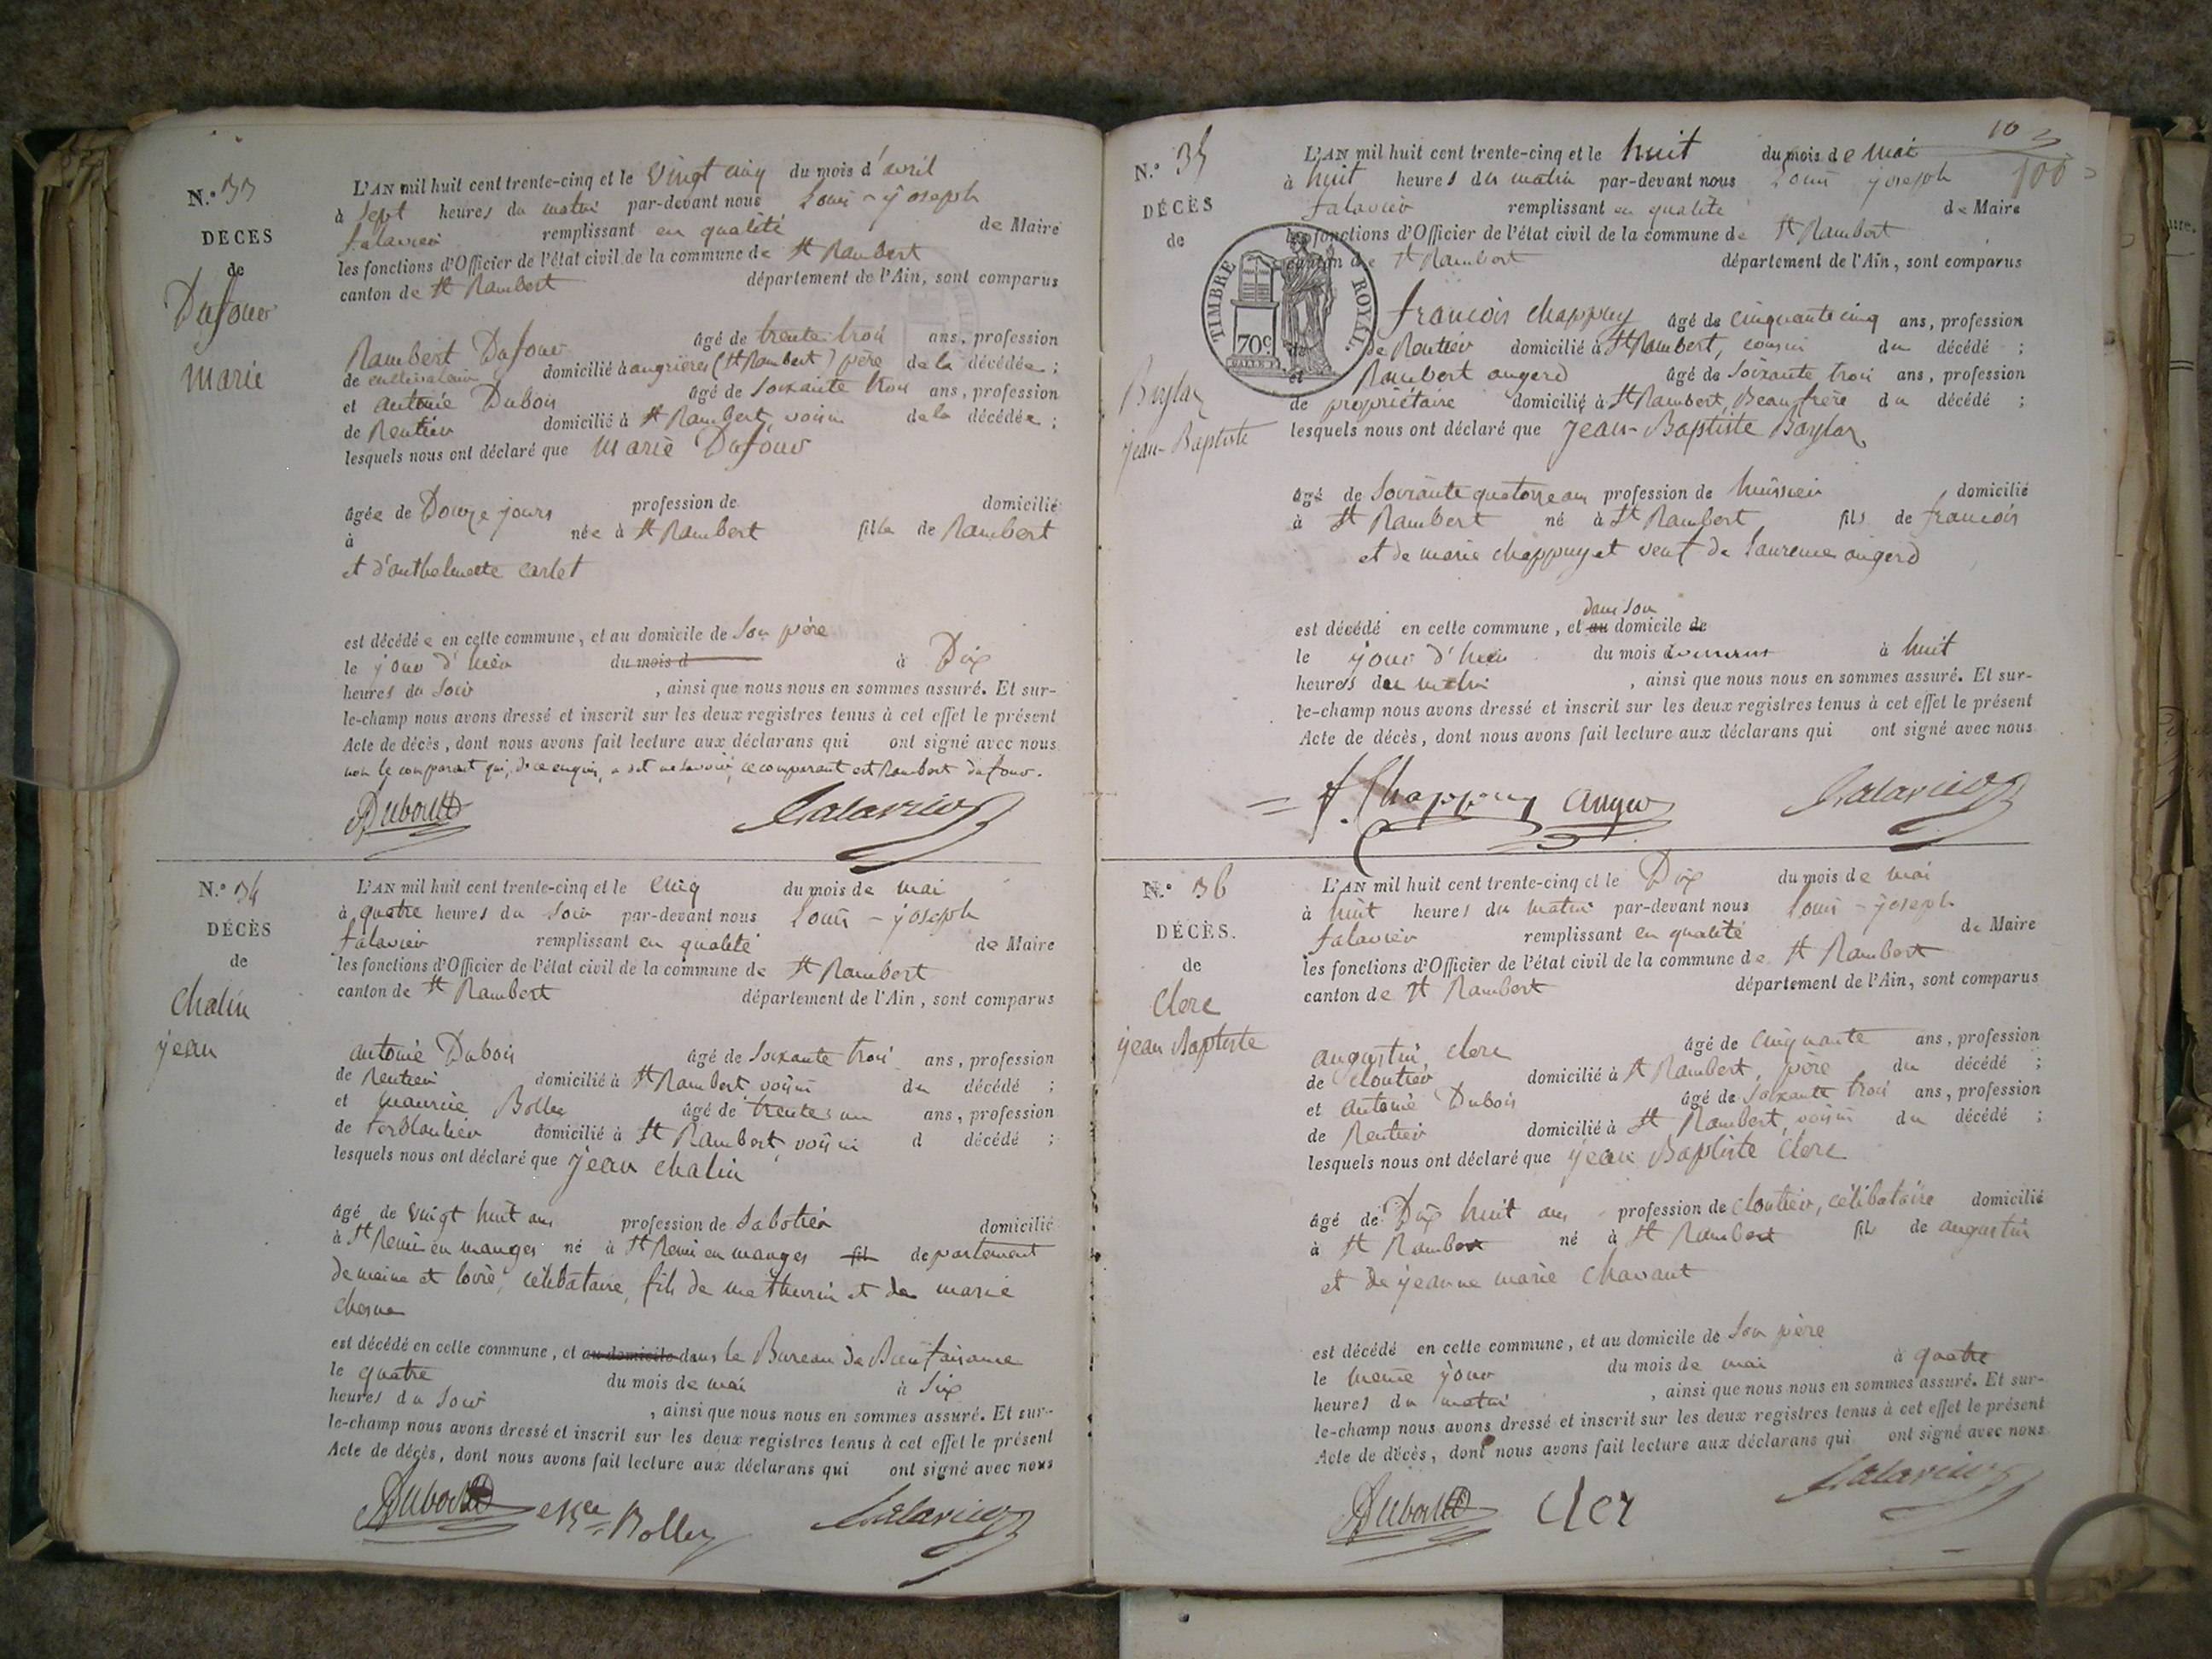 N.° 33
DÉCES
de
Dufour
marie
L'AN mil huit cent trente-cinq et le vingt cinq du mois d'avril
à sept heures du matin par-devant nous Louis-joseph
falavier remplissant en qualité de Maire
les fonctions d'Officier de l'état civil de la commune de St Rambert
canton de St Rambert département de l'Ain, sont comparus
Rambert Dufour âgé de trente trois ans, profession
de cultivateur domicilié à angrieres (St Rambert) père de la décédée ;
et antoine Dubois âgé de soixante trois ans, profession
de Rentier domicilié à St Rambert, voisin de la décédée ;
lesquels nous ont déclaré que marie Dufour
âgée de Douze jours profession de domicilié
à née à St Rambert fille de Rambert
et d'anthelmette carlet
est décédée en cette commune, et au domicile de son père
le jour d'hier du mois d à Dix
heures du soir , ainsi que nous nous en sommes assuré. Et sur-
le-champ nous avons dressé et inscrit sur les deux registres tenus à cet effet le présent
Acte de décès, dont nous avons fait lecture aux déclarans qui ont signé avec nous
non le comparant qui, de ce enquis, a dit ne savoir, ce comparant est Rambert dufour.
Dubois falavier
N.° 34
DÉCÈS
de
Chalin
jean
L'AN mil huit cent trente-cinq et le cinq du mois de mai
à quatre heures du soir par-devant nous Louis-joseph
falavier remplissant en qualité de Maire
les fonctions d'Officier de l'état civil de la commune de St Rambert
canton de St Rambert département de l'Ain, sont comparus
antoine Dubois âgé de soixante trois ans, profession
de Rentier domicilié à St Rambert voisin du décédé ;
et maurice Bolley âgé de trente un ans, profession
de ferblantier domicilié à St Rambert, voisin d décédé ;
lesquels nous ont déclaré que jean chalin
âgé de vingt huit ans profession de Sabotier domicilié
à St Remi en mauges né à St Remi en mauges fil departement
de maine et loire, célibataire, fils de mathurin et de marie
chesne
est décédé en cette commune, et au domicile dans le Bureau de Bienfaisance
le quatre du mois de mai à six
heures du soir , ainsi que nous nous en sommes assuré. Et sur-
le-champ nous avons dressé et inscrit sur les deux registres tenus à cet effet le présent
Acte de décès, dont nous avons fait lecture aux déclarans qui ont signé avec nous
Dubois Bolley falavier
10
100
N.° 35
DÉCÈS
de
Baylar
jean-Baptiste
L'AN mil huit cent trente-cinq et le huit du mois de mai
à huit heures du matin par-devant nous Louis joseph
falavier remplissant en qualité de Maire
les fonctions d'Officier de l'état civil de la commune de St Rambert
canton de St Rambert département de l'Ain, sont comparus
TIMBRE ROYAL.
70c.
francois chappuy âgé de cinquante cinq ans, profession
de Rentier domicilié à St Rambert, cousin du décédé ;
et Rambert augerd âgé de soixante trois ans, profession
de propriétaire domicilié à St Rambert, Beau frère du décédé ;
lesquels nous ont déclaré que jean-Baptiste Baylar
âgé de soixante quatorze ans profession de huissier domicilié
à St Rambert né à St Rambert fils de francois
et de marie chappuy et veuf de laurence augerd
dans son
est décédé en cette commune, et au domicile de
le jour d'hier du mois à huit
heures du matin , ainsi que nous nous en sommes assuré. Et sur-
le-champ nous avons dressé et inscrit sur les deux registres tenus à cet effet le présent
Acte de décès, dont nous avons fait lecture aux déclarans qui ont signé avec nous
f. Chappuy auger falavier
N.° 36
DÉCÈS.
de
Clerc
jean Baptiste
L'AN mil huit cent trente-cinq et le Dix du mois de mai
à huit heures du matin par-devant nous Louis-joseph
falavier remplissant en qualité de Maire
les fonctions d'Officier de l'état civil de la commune de St Rambert
canton de St Rambert département de l'Ain, sont comparus
augustin clerc âgé de cinquante ans, profession
de cloutier domicilié à St Rambert, père du décédé ;
et antoine Dubois âgé de soixante trois ans, profession
de Rentier domicilié à St Rambert, voisin du décédé ;
lesquels nous ont déclaré que jean Baptiste clerc
âgé de Dix huit ans profession de cloutier, célibataire domicilié
à St Rambert né à St Rambert fils de augustin
et de jeanne marie chavant
est décédé en cette commune, et au domicile de son père
le meme jour du mois de mai à quatre
heures du matin , ainsi que nous nous en sommes assuré. Et sur-
le-champ nous avons dressé et inscrit sur les deux registres tenus à cet effet le présent
Acte de décès, dont nous avons fait lecture aux déclarans qui ont signé avec nous
Dubois Cler falavier